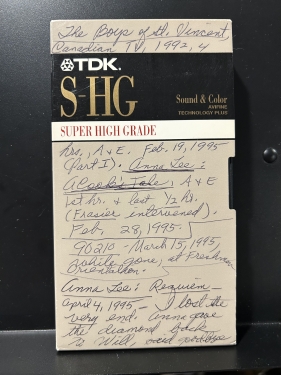 The Boys of St. Vincent,
Canadian TV, 1992, 4
TDK
S-HG
Sound & Color
AVIPINE
TECHNOLOGY PLUS
SUPER HIGH GRADE
hrs., A & E. Feb. 19, 1995
(Part I). Anna Lee:
A Cook's Tale, A & E
1st hr. & last 1/2 hr.
(Frasier intervened).
Feb. 28, 1995.
90210 - March 15, 1995,
while gone, at Freshman
Orientation.
Anna Lee: Requiem -
April 4, 1995 - I lost the
very end. Anna gave
the diamond back
to Will, said goodbye